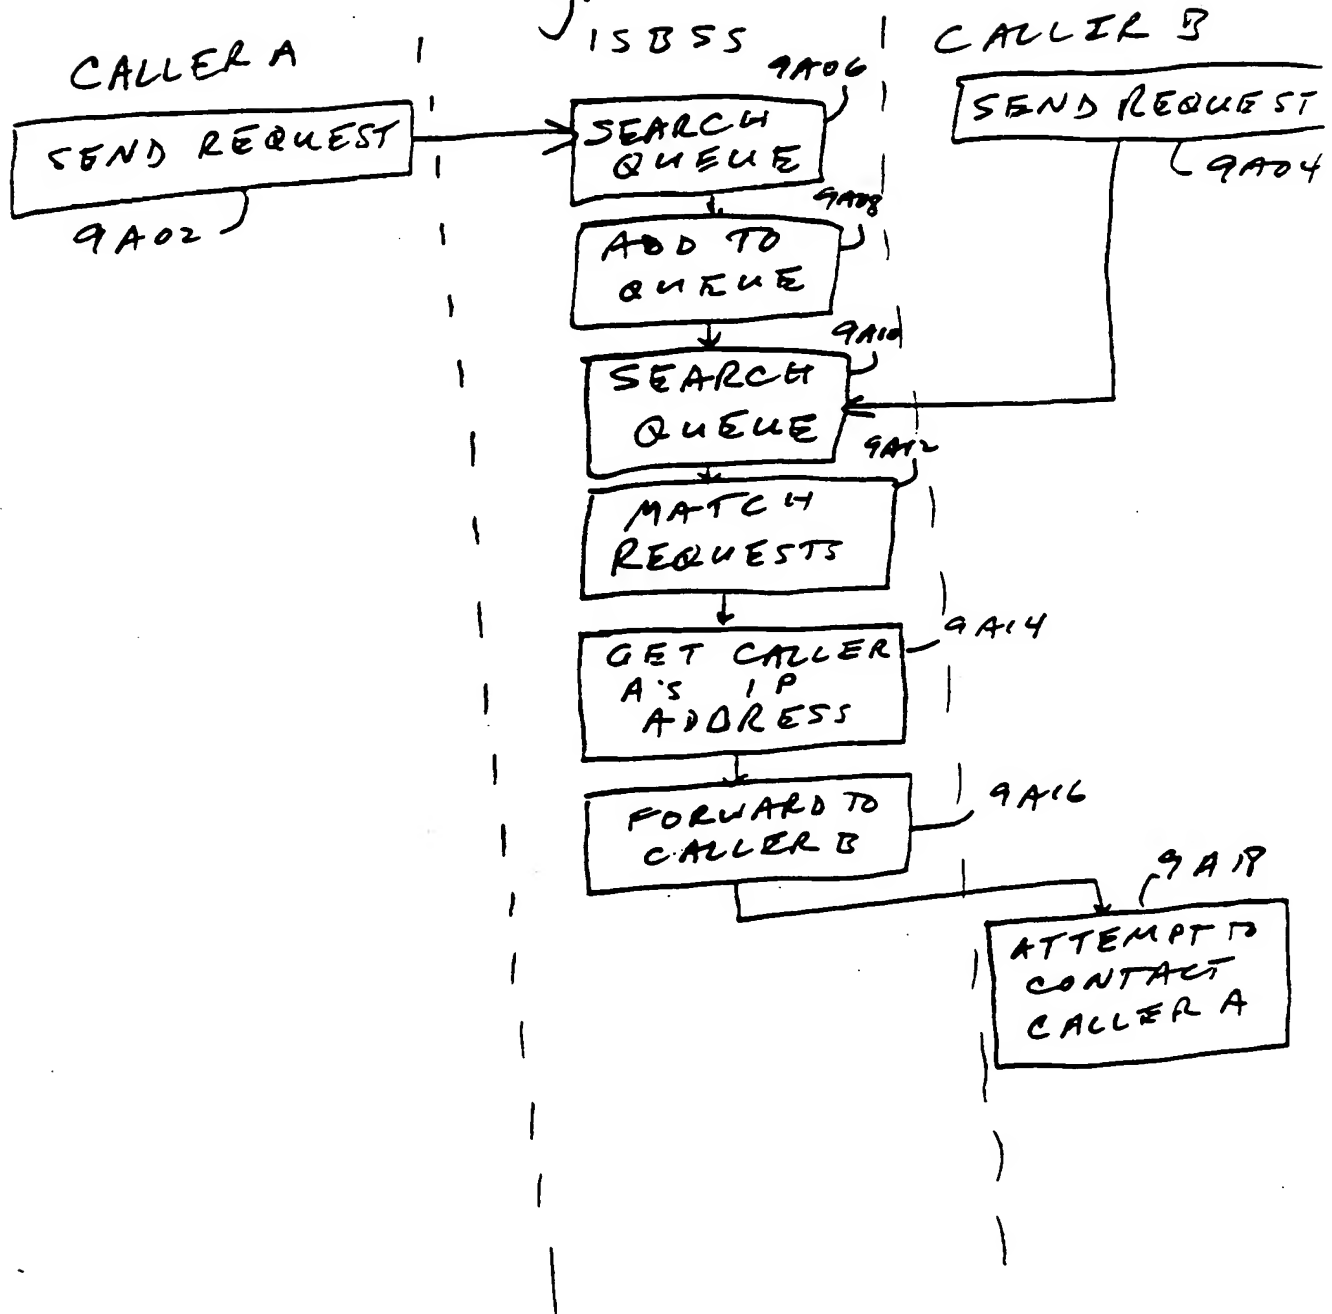 CALLER A
ISBSS
CALLER B
SEND REQUEST
9A02
SEARCH
QUEUE
9A06
SEND REQUEST
9A04
ADD TO
QUEUE
9A08
SEARCH
QUEUE
9A10
MATCH
REQUESTS
9A12
GET CALLER
A's IP
ADDRESS
9A14
FORWARD TO
CALLER B
9A16
ATTEMPT TO
CONTACT
CALLER A
9A18